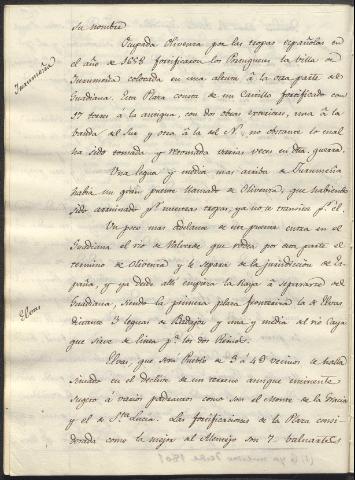 su nombre
Ocupada Olivenza por las tropas españolas en
el año de 1658 fortificaron los Portugueses la villa de
Jurumeña
Jurumeña colocada en una altura á la otra parte de
Guadiana. Esta Plaza consta de un Castillo fortificado con
17 torres á la antigua, con dos obras exteriores, una á la
banda del Sur y otra á la del N., no obstante lo cual
ha sido tomada y retomada varias veces en dha guerra.
Una legua y media mas arriba de Jurumeña
habia un gran puente llamado de Olivenza, que habiendo
sido arruinado pr nuestras tropas, ya no se transita pr él.
Un poco mas adelante de este puente entra en el
Guadiana el rio de Valverde que rodea por esta parte el
termino de Olivenza y le separa de la jurisdiccion de Es-
paña, y ya desde alli empieza la Raya á separarse del
Elvas
Guadiana, siendo la primera plaza fronteriza la de Elvas
distante 3 leguas de Badajoz y una y media del rio Caya
que sirve de linea pa los dos Reinos.
Elvas, que será Pueblo de 3 á 4D vecinos se halla
situado en el declive de un terreno aunque eminente
sugeto á varios padrastros como son el Monte de la Gracia
y el de Sta Lucia. Las fortificaciones de la Plaza consi-
derada como la mejor del Alentejo son 7 baluartes